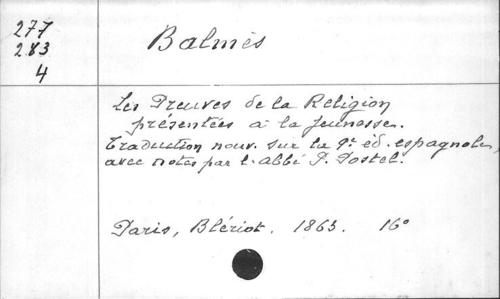 277
283
4
Balmès
Les Preuves de la Religion
présentées à la jeunesse.
Traduction nouv. sur la 9e éd. espagnole,
avec notes par l'abbé P. Postel.
Paris, Blériot. 1863. 16°